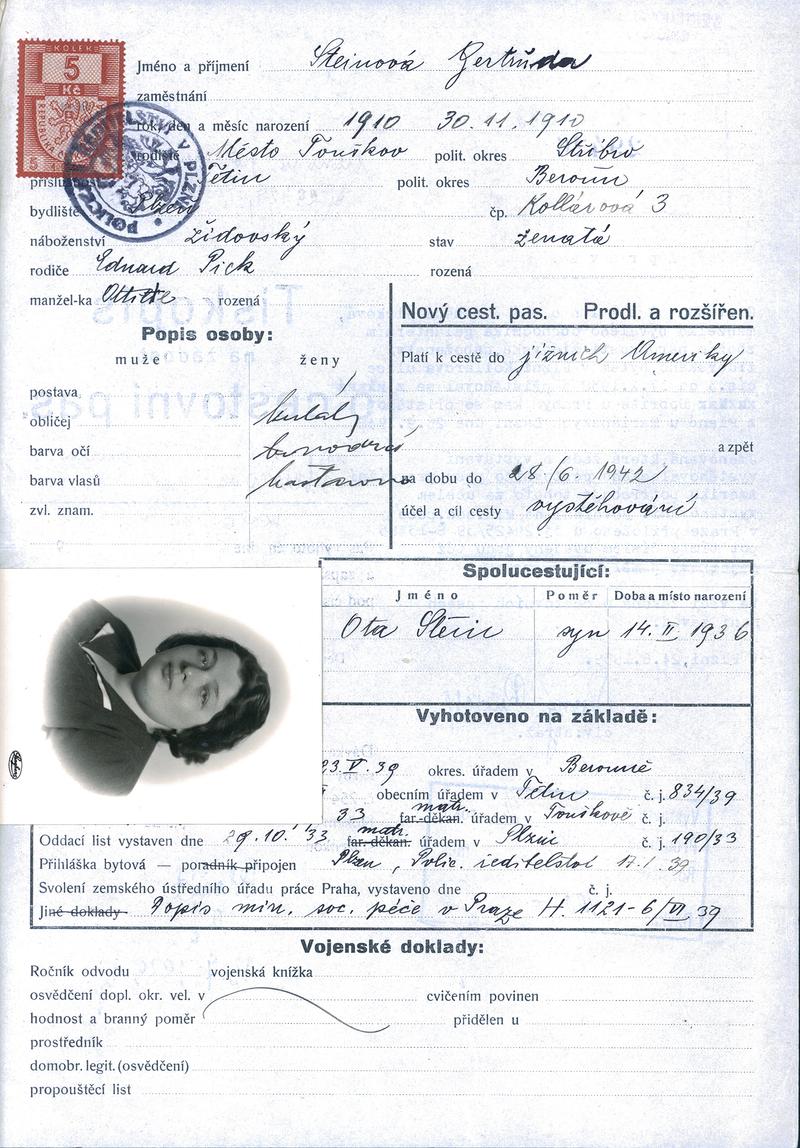 KOLEK
5
Kč
Jméno a příjmení Steinová Gertruda
zaměstnání
rok, den a měsíc narození 1910 30.11.1910
rodiště Město Touškov polit. okres Stříbro
příslušnost Tetín polit. okres Beroun
bydliště Plzeň čp. Kollárová 3
náboženství židovský stav ženatá
rodiče Eduard Pick rozená
manžel-ka Ottilie rozená
Nový cest. pas. Prodl. a rozšířen.
Popis osoby:
muže ženy
Platí k cestě do jižních Ameriky
postava
obličej kulatý
barva očí a zpět
barva vlasů na dobu do 28/6. 1942
zvl. znam. účel a cíl cesty vystěhování
Spolucestující:
Jméno Poměr Doba a místo narození
Ota Stein syn 14. II. 1936
Vyhotoveno na základě:
23.V.39 okres. úřadem v Berouně
obecním úřadem v Tetín č. j. 834/39
33 matr. far.-děkan. úřadem v Touškově č. j.
Oddací list vystaven dne 29.10.'33 matr. far.-děkan. úřadem v Plzni č. j. 190/33
Přihláška bytová — poradník připojen Plzeň, Polic. ředitelství 17.1.39
Svolení zemského ústředního úřadu práce Praha, vystaveno dne č. j.
Jiné doklady Popis min. soc. péče v Praze H. 1121-6/VI 39
Vojenské doklady:
Ročník odvodu vojenská knížka
osvědčení dopl. okr. vel. v cvičením povinen
hodnost a branný poměr přidělen u
prostředník
domobr. legit. (osvědčení)
propouštěcí list